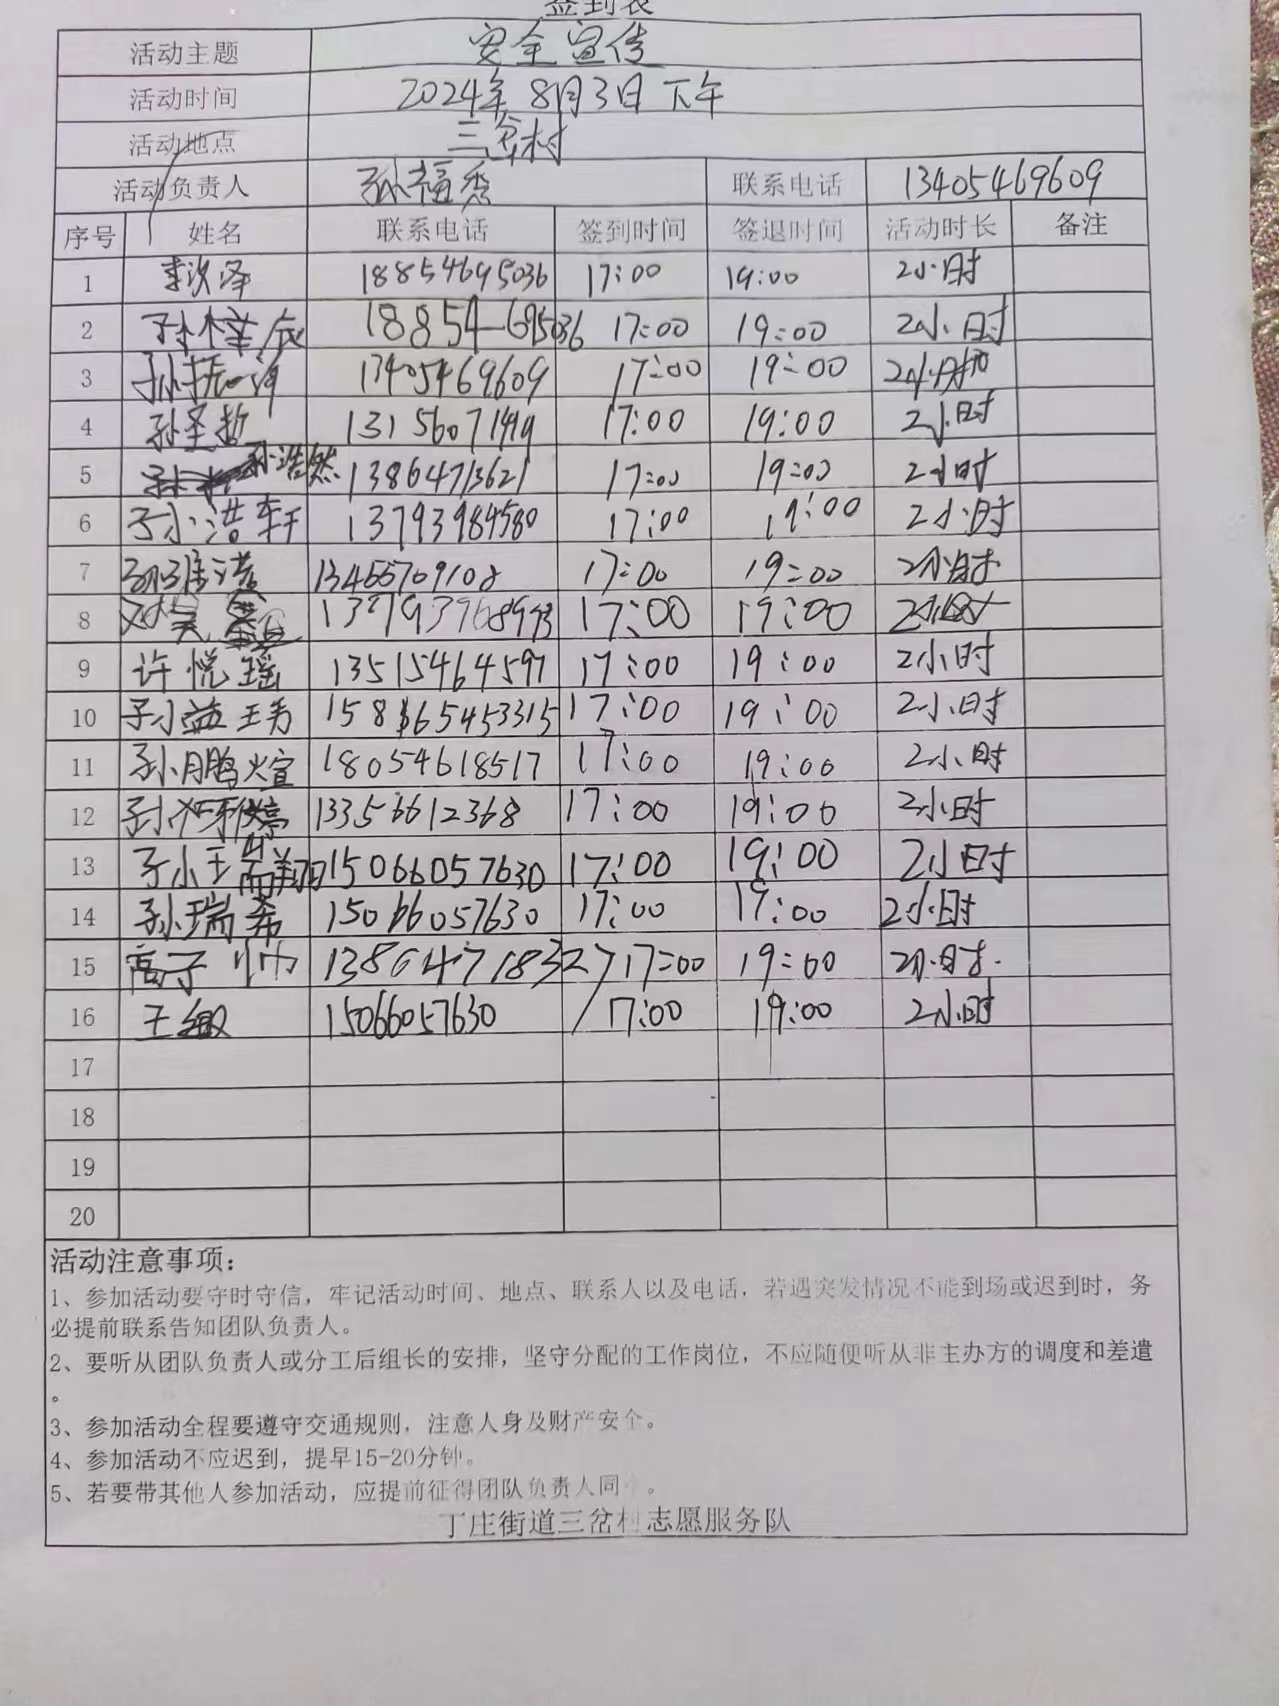 签到表
活动主题 安全宣传
活动时间 2024年8月3日下午
活动地点 三岔村
活动负责人 孙福秀 联系电话 13405469609
序号 姓名 联系电话 签到时间 签退时间 活动时长 备注
1 李汶泽 18854695036 17:00 19:00 2小时
2 18854695036 17:00 19:00 2小时
3 孙振 13405469609 17:00 19:00 2小时
4 孙圣哲 13156071419 17:00 19:00 2小时
5 孙浩然 13864713621 17:00 19:00 2小时
6 孙浩轩 13793984580 17:00 19:00 2小时
7 17:00 19:00 2小时
8 17:00 19:00
9 许悦瑶 13515464597 17:00 19:00 2小时
10 孙益 17:00 19:00 2小时
11 孙鹏煊 18054618517 17:00 19:00 2小时
12 13356612368 17:00 19:00 2小时
13 15066057630 17:00 19:00 2小时
14 孙瑞希 15066057630 17:00 19:00 2小时
15 高子帅 17:00 19:00 2小时
16 王敏 15066057630 17:00 19:00 2小时
17
18
19
20
活动注意事项：
1、参加活动要守时守信，牢记活动时间、地点、联系人以及电话，若遇突发情况不能到场或迟到时，务
必提前联系告知团队负责人。
2、要听从团队负责人或分工后组长的安排，坚守分配的工作岗位，不应随便听从非主办方的调度和差遣
。
3、参加活动全程要遵守交通规则，注意人身及财产安全。
4、参加活动不应迟到，提早15-20分钟。
5、若要带其他人参加活动，应提前征得团队负责人同。
丁庄街道三岔村志愿服务队